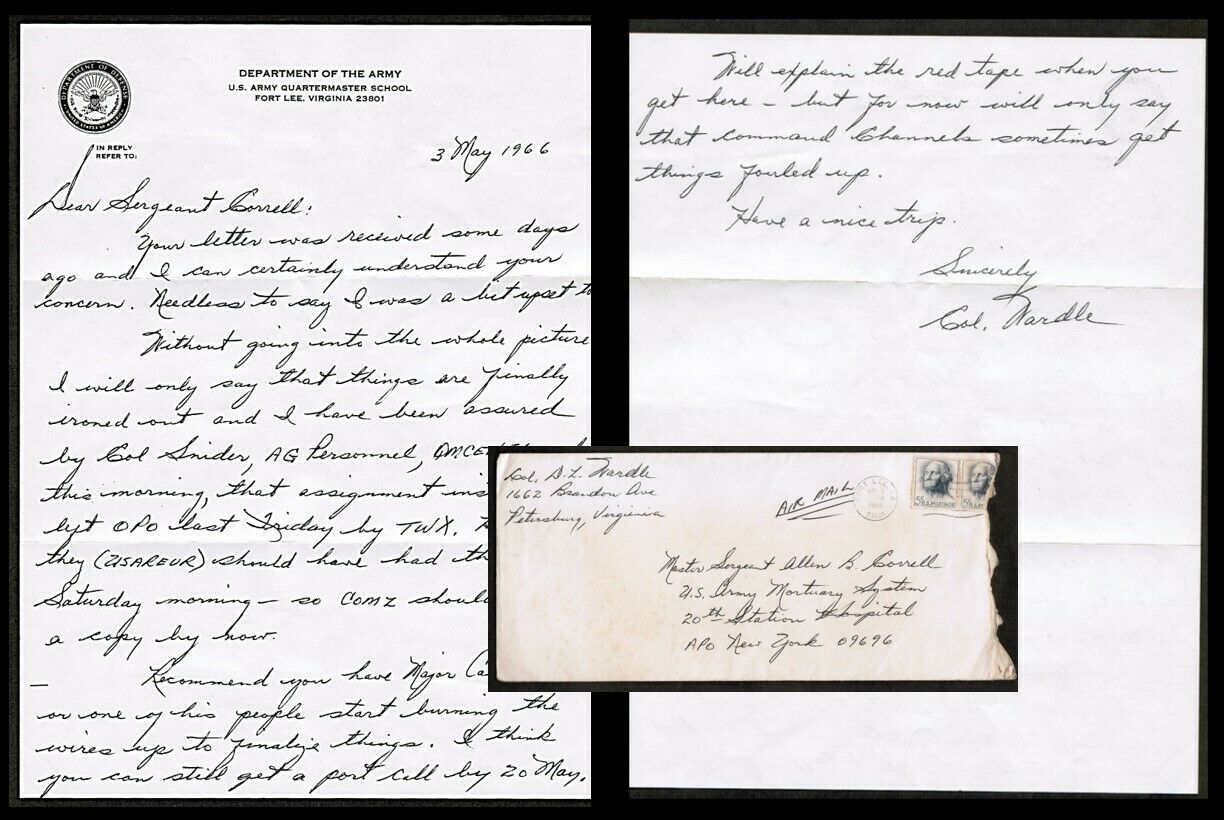 DEPARTMENT OF DEFENSE
UNITED STATES OF AMERICA
DEPARTMENT OF THE ARMY
U.S. ARMY QUARTERMASTER SCHOOL
FORT LEE, VIRGINIA 23801
IN REPLY
REFER TO:
3 May 1966
Dear Sergeant Correll:
Your letter was received some days
ago and I can certainly understand your
concern. Needless to say I was a bit upset to
Without going into the whole picture
I will only say that things are finally
ironed out and I have been assured
by Col Snider, AG Personnel,
this morning, that assignment ins
left OPO last Friday by TWX.
they (USAREUR) should have had th
Saturday morning – so COMZ shoul
a copy by now.
Recommend you have Major Ca
or one of his people start burning the
wires up to finalize things. I think
you can still get a port call by 20 May.
Will explain the red tape when you
get here – but for now will only say
that command channels sometimes get
things fouled up.
Have a nice trip.
Sincerely
Col. Wardle
Col. D.L. Wardle
1662 Brandon Ave
Petersburg, Virginia
AIR MAIL
5¢ U.S. POSTAGE
Master Sergeant Allen B. Correll
U.S. Army Mortuary System
20th Station Hospital
APO New York 09696